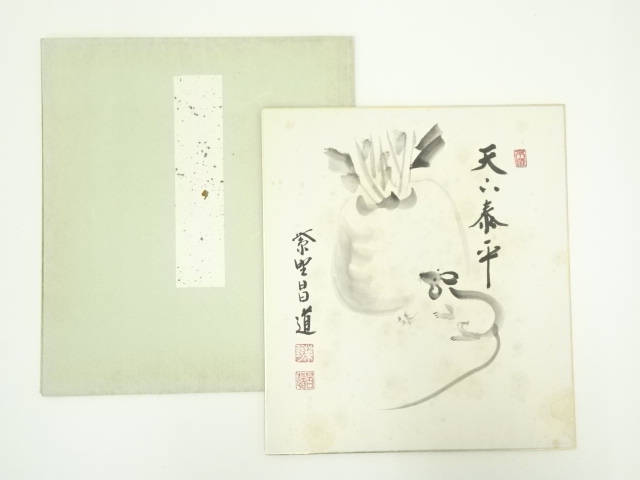 天下泰平
紫野昌道